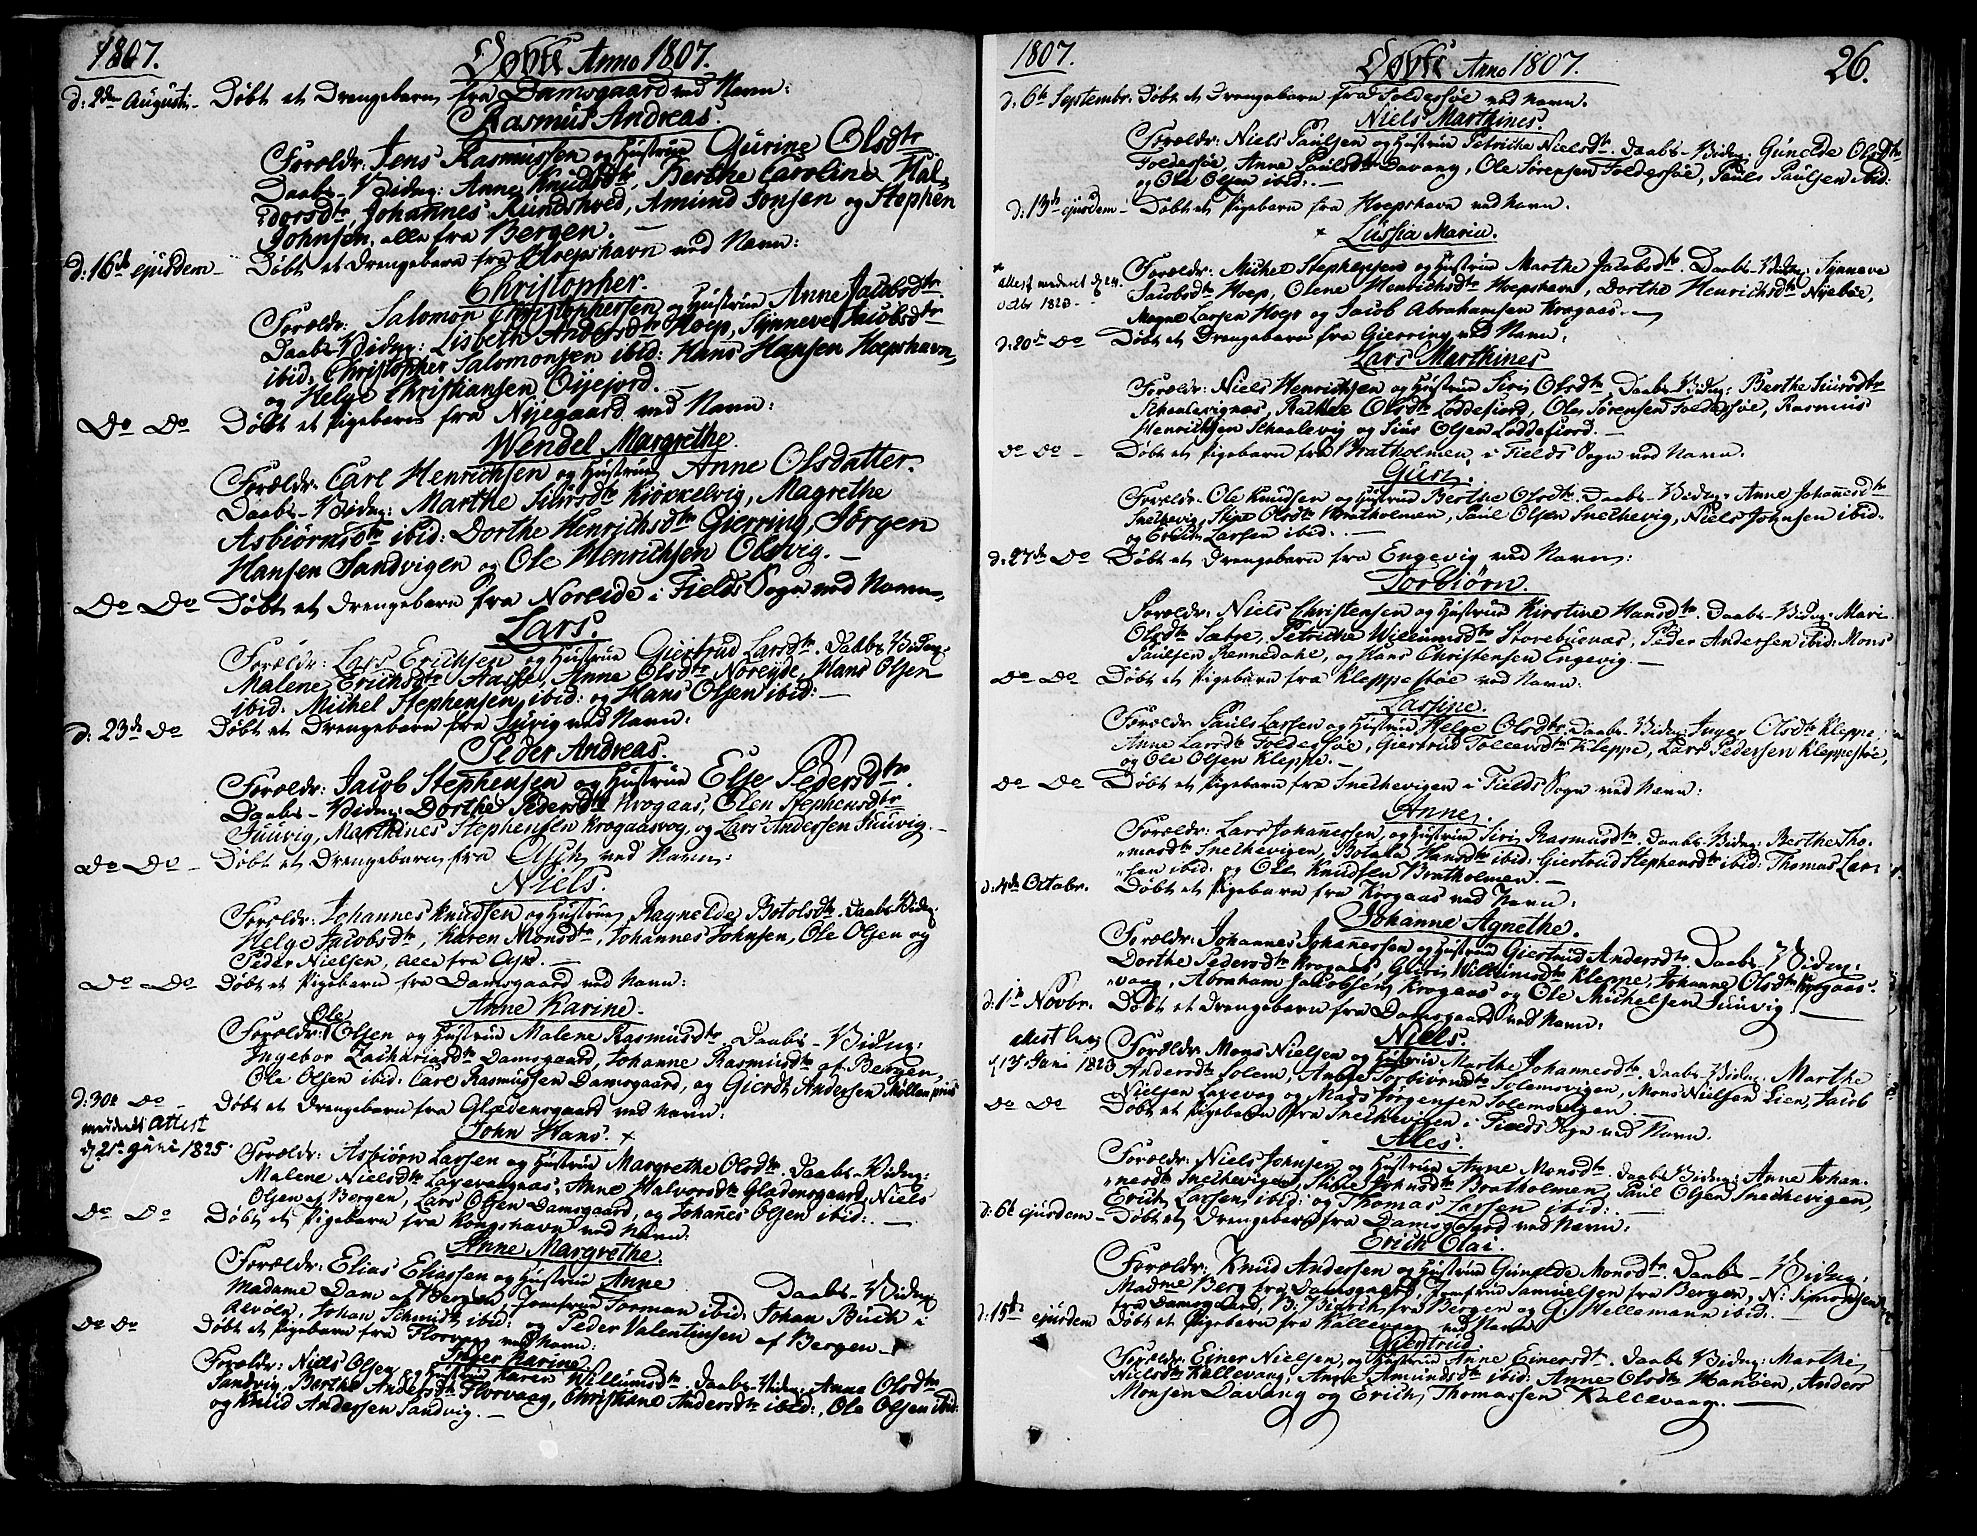 1807. Døbte Anno 1807.
d: 2den Augusti – Døbt et Drengebarn fra Damsgaard ved Navn:
Rasmus Andreas.
Foreldr: Jens Rasmussen og Hustrue Gurine Olsdtr
Daabs-Vidng: Anne Knudsdtr, Berthe Caroline Hal-
dorsdtr, Johannes Rundshved, Amund Jonsen og Stephen
Johnsen, alle fra Bergen. –
d: 16de ejusdem – Døbt et Drengebarn fra Hoepshavn ved Navn:
Christopher.
Foreldr: Salomon Christophersen og Hustrue Anne Jacobsdtr
Daabs-Vidng: Lisbeth Andersdtr Hoep, Synneve Jacobsdtr
ibid, Christopher Salomonsen ibid: Hans Hansen Hoepshavn,
og Helge Christiansen Øijejord. –
Do Do Døbt et Pigebarn fra Nyegaard ved Navn:
Wendel Margrethe.
Foreldr: Carl Henrichsen og Hustrue Anne Olsdatter.
Daabs-Vidng: Marthe Siursdtr Kiøkkelvig, Magrethe
Asbiørnsdtr ibid: Dorthe Henrichsdtr Gierring, Jørgen
Hansen Sandvigen og Ole Henrichsen Olsvig. –
Do Do Døbt et Drengebarn fra Noreide i Fields Sogn ved Navn,
Lars.
Foreldr: Lars Erichsen og Hustrue Giertrud Larsdtr. Daabs-Vidng:
Malene Erichsdtr Aasse, Anne Olsdtr Noreyde, Hans Olsen
ibid. Michel Stephensen ibid: og Hans Olsen ibid: –
d: 23de Do Døbt et Drengebarn fra Juvig ved Navn:
Peder Andreas.
Foreldr: Jacob Stephensen og Hustrue Else Pedersdtr.
Daabs-Vidng: Dorthe Pedersdtr Krogaas, Olen Stephensdtr
Juuvig, Marthines Stephensen Krogaasvog, og Lars Andersen Juuvig. –
Do Do – Døbt et Drengebarn fra ved Navn:
Niels.
Foreldr: Johannes Knudsen og Hustrue Ragnelde Botolsdtr. Daabs-Vidng:
Helge Jacobsdtr, Karen Monsdtr, Johannes Johnsen, Ole Olsen og
Peder Nielsen, alle fra –
Do Do Døbt et Pigebarn fra Damsgaard ved Navn:
Anne Karine.
Foreldr: Ole Olsen og Hustrue Malene Rasmusdtr. Daabs-Vidng:
Ingebor Zachariasdtr Damsgaard, Johanne Rasmusdtr af Bergen,
Ole Olsen ibid: Carl Rasmussen Damsgaard, og Gierdt Andersen Møllenpriis
d: 30te Do – Døbt et Drengebarn fra Gladensgaard ved Navn:
meddeelt Attest
d 21de Juni 1825.
John Hans. x
Foreldr: Asbiørn Larsen og Hustrue Margrethe Olsdtr. Daabs-Vidng:
Malene Nielsdtr Laxevaagnæs, Anne Halvorsdtr Gladensgaard, Niels
Olsen af Bergen, Lars Olsen Damsgaard, og Johannes Olsen ibid: –
Do Do Døbt et Pigebarn fra Kongshavn ved Navn:
Anne Margrethe.
Foreldr: Elias Eliassen og Hustrue Anne Daabs-Vidng:
Madame Dam af Bergen Jomfrue Forman ibid. Johan Buch i
Alvøen, Johan Schmidt ibid: og Peder Valentinsen af Bergen –
Do Do Døbt et Pigebarn fra Florvaag ved Navn:
Inger Karine.
Foreldr: Niels Olsen og Hustrue Karen Willumsdtr. Daabs-Vidng: Anna Olsdtr
Sandvig, Berthe Andersdtr Florvaag, Christiane Andersdtr ibid:, Ole Olsen ibid:
og Knud Andersen Sandvig. –
1807. Døbte Anno 1807. 26.
d: 6te Septembr. Døbt et Drengebarn fra Foldessøe ved Navn.
Niels Marthines.
Foreldr: Niels Paulsen og Hustrue Petriche Nielsdtr. Daabs-Vidng: Gunelde Olsdtr
Foldessøe, Anne Paulsdtr Davang, Ole Sørensen Foldessøe, Pauls Paulsen ibid:
og Ole Olsen ibid: –
d: 13de ejusdem – Døbt et Pigebarn fra Hoepshavn ved Navn.
x Lussia Maria.
x
Attest medeelt d 24
Octbr 1820 –
Foreldr: Michel Stephensen og Hustrue Marthe Jacobsdtr. Daabs-Vidng: Synneve
Jacobsdtr Hoep, Olene Henrichsdtr Hoepshavn, Dorthe Henrichsdtr Nyebøe,
Mogne Larsen Hoep og Jacob Abrahamsen Krogaas. –
d: 20de Do Døbt et Drengebarn fra Gierring ved Navn:
Lars Marthines
Foreldr: Niels Henrichsen og Hustrue Siri Olsdtr. Daabs-Vidng: Berthe Siursdtr
Schaalevignæs, Rachel Olsdtr Loddefiord, Ole Sørensen Foldessøe, Rasmus
Henrichsen Schaalevig og Siur Olsen Loddefiord. –
Do Do – Døbt et Pigebarn fra Bratholmen i Fields Sogn ved Navn.
Guri.
Foreldr: Ole Knudsen og Hustrue Berthe Olsdtr. Daabs-Vidng: Anne Johannesdtr
Snelhevig, Olsdtr Bratholmen, Paul Olsen Snelhevig, Niels Johnsen ibid:
og Erich Larsen ibid: –
d: 27de Do Døbt et Drengebarn fra Engevig ved Navn:
Torbiørn.
Foreldr: Niels Christensen og Hustrue Kirstine Hansdtr. Daabs-Vidng: Mari
Olsdtr Sætre, Petriche Willumsdtr Storebuenæs, Peder Andersen ibid: Mons
Paulsen Rennedahl, og Hans Christensen Engevig. –
Do Do Døbt et Pigebarn fra Kleppestøe ved Navn.
Larsine.
Foreldr: Pauls Larsen og Hustrue Helge Olsdtr. Daabs-Vidng: Inger Olsdtr Kleppe,
Anne Larsdtr Foldessøe, Giertrud Tollevsdtr Kleppe, Lars Pedersen Kleppestøe,
og Ole Olsen Kleppe. –
Do Do Døbt et Pigebarn fra Snelhevigen i Fields Sogn ved Navn:
Anne.
Foreldr: Lars Johannessen, og Hustrue Siri Rasmusdtr. Daabs-Vidng: Berthe Tho-
masdtr Snelhevigen, Botele Hansdtr ibid: Giertrud Stephensdtr ibid: Thomas Lar-
sen ibid: og Ole Knudsen Bratholmen. –
d: 4de Octobr. Døbt et Pigebarn fra Krogaas ved Navn:
Johanne Agnethe.
Foreldr: Johannes Johannessen og Hustrue Giertrud Andersdtr. Daabs-Vidng:
Dorthe Pedersdtr Krogaas, Guri Willumsdtr Kleppe, Johanne Olsdtr Krogaas-
vaag, Abraham Jacobsen Krogaas og Ole Michelsen Juuvig. –
d: 1ste Novbr. Døbt et Drengebarn fra Damsgaard ved Navn:
Niels.
Attest
d 13 Juni 1823
Foreldr: Mons Nielsen og Hustrue Marthe Johannesdtr. Daabs-Vidng: Marthe
Andersdtr Solem, Anne Torbiørnsdtr Solemsvigen, Mons Nielsen Lien, Jacob
Nielsen Laxevog og Mads Jørgensen Solemsvigen.
Do Do Døbt et Pigebarn fra Snelhevigen i Fields Sogn ved Navn.
Ales.
Foreldr: Niels Johnsen og Hustrue Anne Monsdtr. Daabs-Vidng: Anne Johan-
nesdtr Snelhevigen, Johnsdtr Bratholmen, Paul Olsen Snelhevigen,
Erich Larsen ibid: og Thomas Larsen ibid: –
d: 6te ejusdem – Døbt et Drengebarn fra Damsgaard ved Navn:
Erich Olai.
Foreldr: Knud Andersen og Hustrue Gunelde Monsdtr. Daabs-Vidng:
Madme Berg fra Damsgaard, Jomfrue Samuelsen fra Bergen, N: Simonsen
fra Damsgaard, B: Didrich fra Bergen og G: Wellemann ibid: –
d: 15de ejusdem Døbt et Pigebarn fra Kallevaag ved Navn
Giertrud
Foreldr: Einer Nielsen, og Hustrue Anne Einersdtr. Daabs-Vidng: Marthe
Nielsdtr Kallevaag, Anne Amundsdtr ibid: Anne Olsdtr Hanøen, Anders
Monsen Davang og Erich Thomassen Kallevaag. –